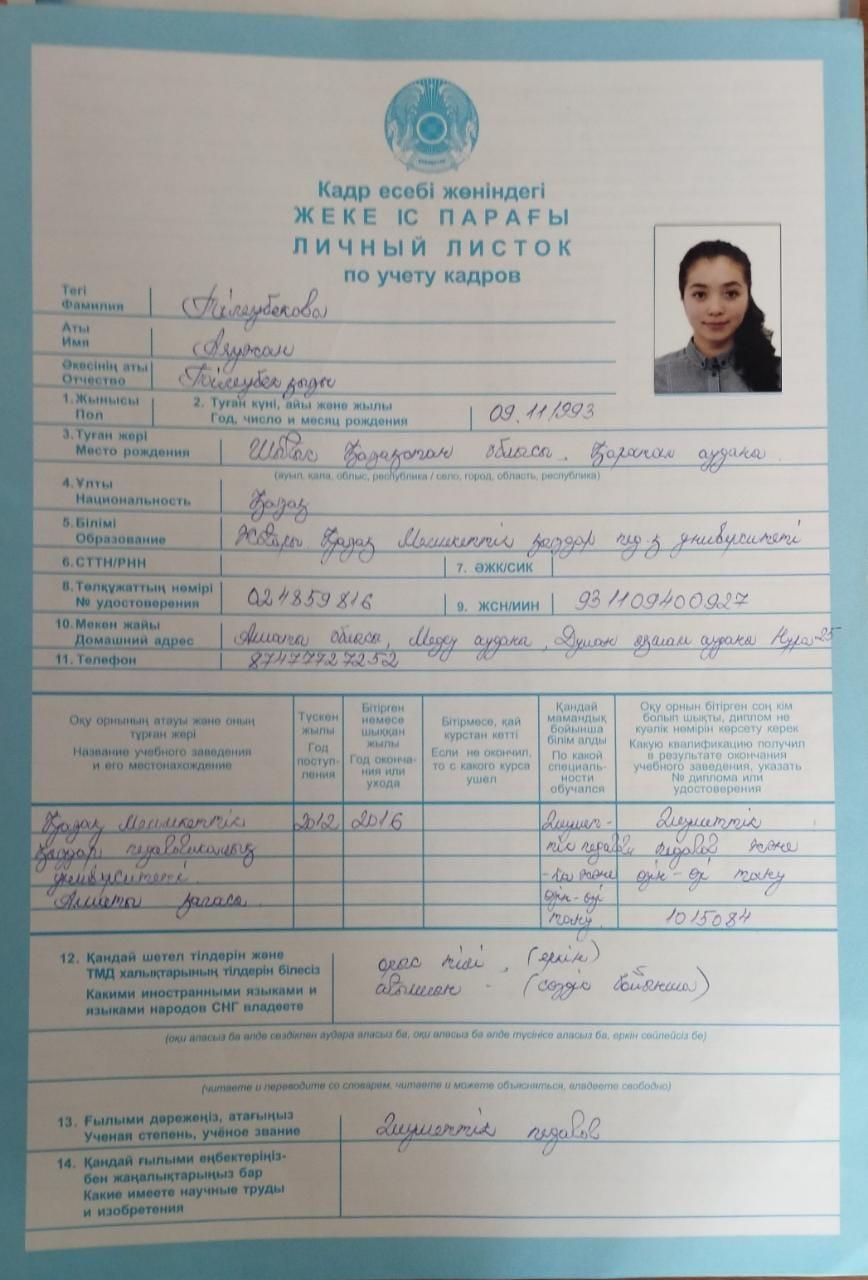 Кадр есебі жөніндегі
ЖЕКЕ ІС ПАРАҒЫ
ЛИЧНЫЙ ЛИСТОК
по учету кадров
Тегі
Фамилия
Тілеубекова
Аты
Имя
Аяужан
Әкесінің аты
Отчество
Тілеубек қызы
1. Жынысы
Пол
2. Туған күні, айы және жылы
Год, число и месяц рождения
09.11.1993
3. Туған жері
Место рождения
Шығыс Қазақстан облысы. ауданы
(ауыл, қала, облыс, республика / село, город, область, республика)
4. Ұлты
Национальность
Қазақ
5. Білімі
Образование
Жоғары. Қазақ Мемлекеттік қыздар пед-қ университеті
6. СТТН/РНН
7. ӘЖК/СИК
8. Төлқұжаттың нөмірі
№ удостоверения
024859816
9. ЖСН/ИИН
931109400927
10. Мекен жайы
Домашний адрес
Алматы облысы, Медеу ауданы, Думан ауданы Нура-25
11. Телефон
87477727252
Оқу орнының атауы және оның
тұрған жері
Название учебного заведения
и его местонахождение
Түскен
жылы
Год
поступ-
ления
Бітірген
немесе
шыққан
жылы
Год оконча-
ния или
ухода
Бітірмесе, қай
курстан кетті
Если не окончил,
то с какого курса
ушел
Қандай
мамандық
бойынша
білім алды
По какой
специаль-
ности
обучался
Оқу орнын бітірген соң кім
болып шықты, диплом не
куәлік немірін көрсету керек
Какую квалификацию получил
в результате окончания
учебного заведения, указать
№ диплома или
удостоверения
Қазақ Мемлекеттік
қыздар педагогикалық
университеті.
Алматы қаласы.
2012
2016
Әлумет-
тік педаго
-ка және
өзін-өзі
тану.
Әлуметтік
педагог және
өзін-өзі тану
1015084
12. Қандай шетел тілдерін және
ТМД халықтарының тілдерін білесіз
Какими иностранными языками и
языками народов СНГ владеете
орыс тілі, (еркін)
ағылшын - (сөздік бойынша)
(оқи аласыз ба әлде сөздікпен аудара аласыз ба, оқи аласыз ба әлде түсінісе аласыз ба, еркін сөйлейсіз бе)
(читаете и переводите со словарем, читаете и можете объясняться, владеете свободно)
13. Ғылыми дәрежеңіз, атағыңыз
Ученая степень, учёное звание
Әлуметтік педагог
14. Қандай ғылыми еңбектеріңіз-
бен жаңалықтарыңыз бар
Какие имеете научные труды
и изобретения